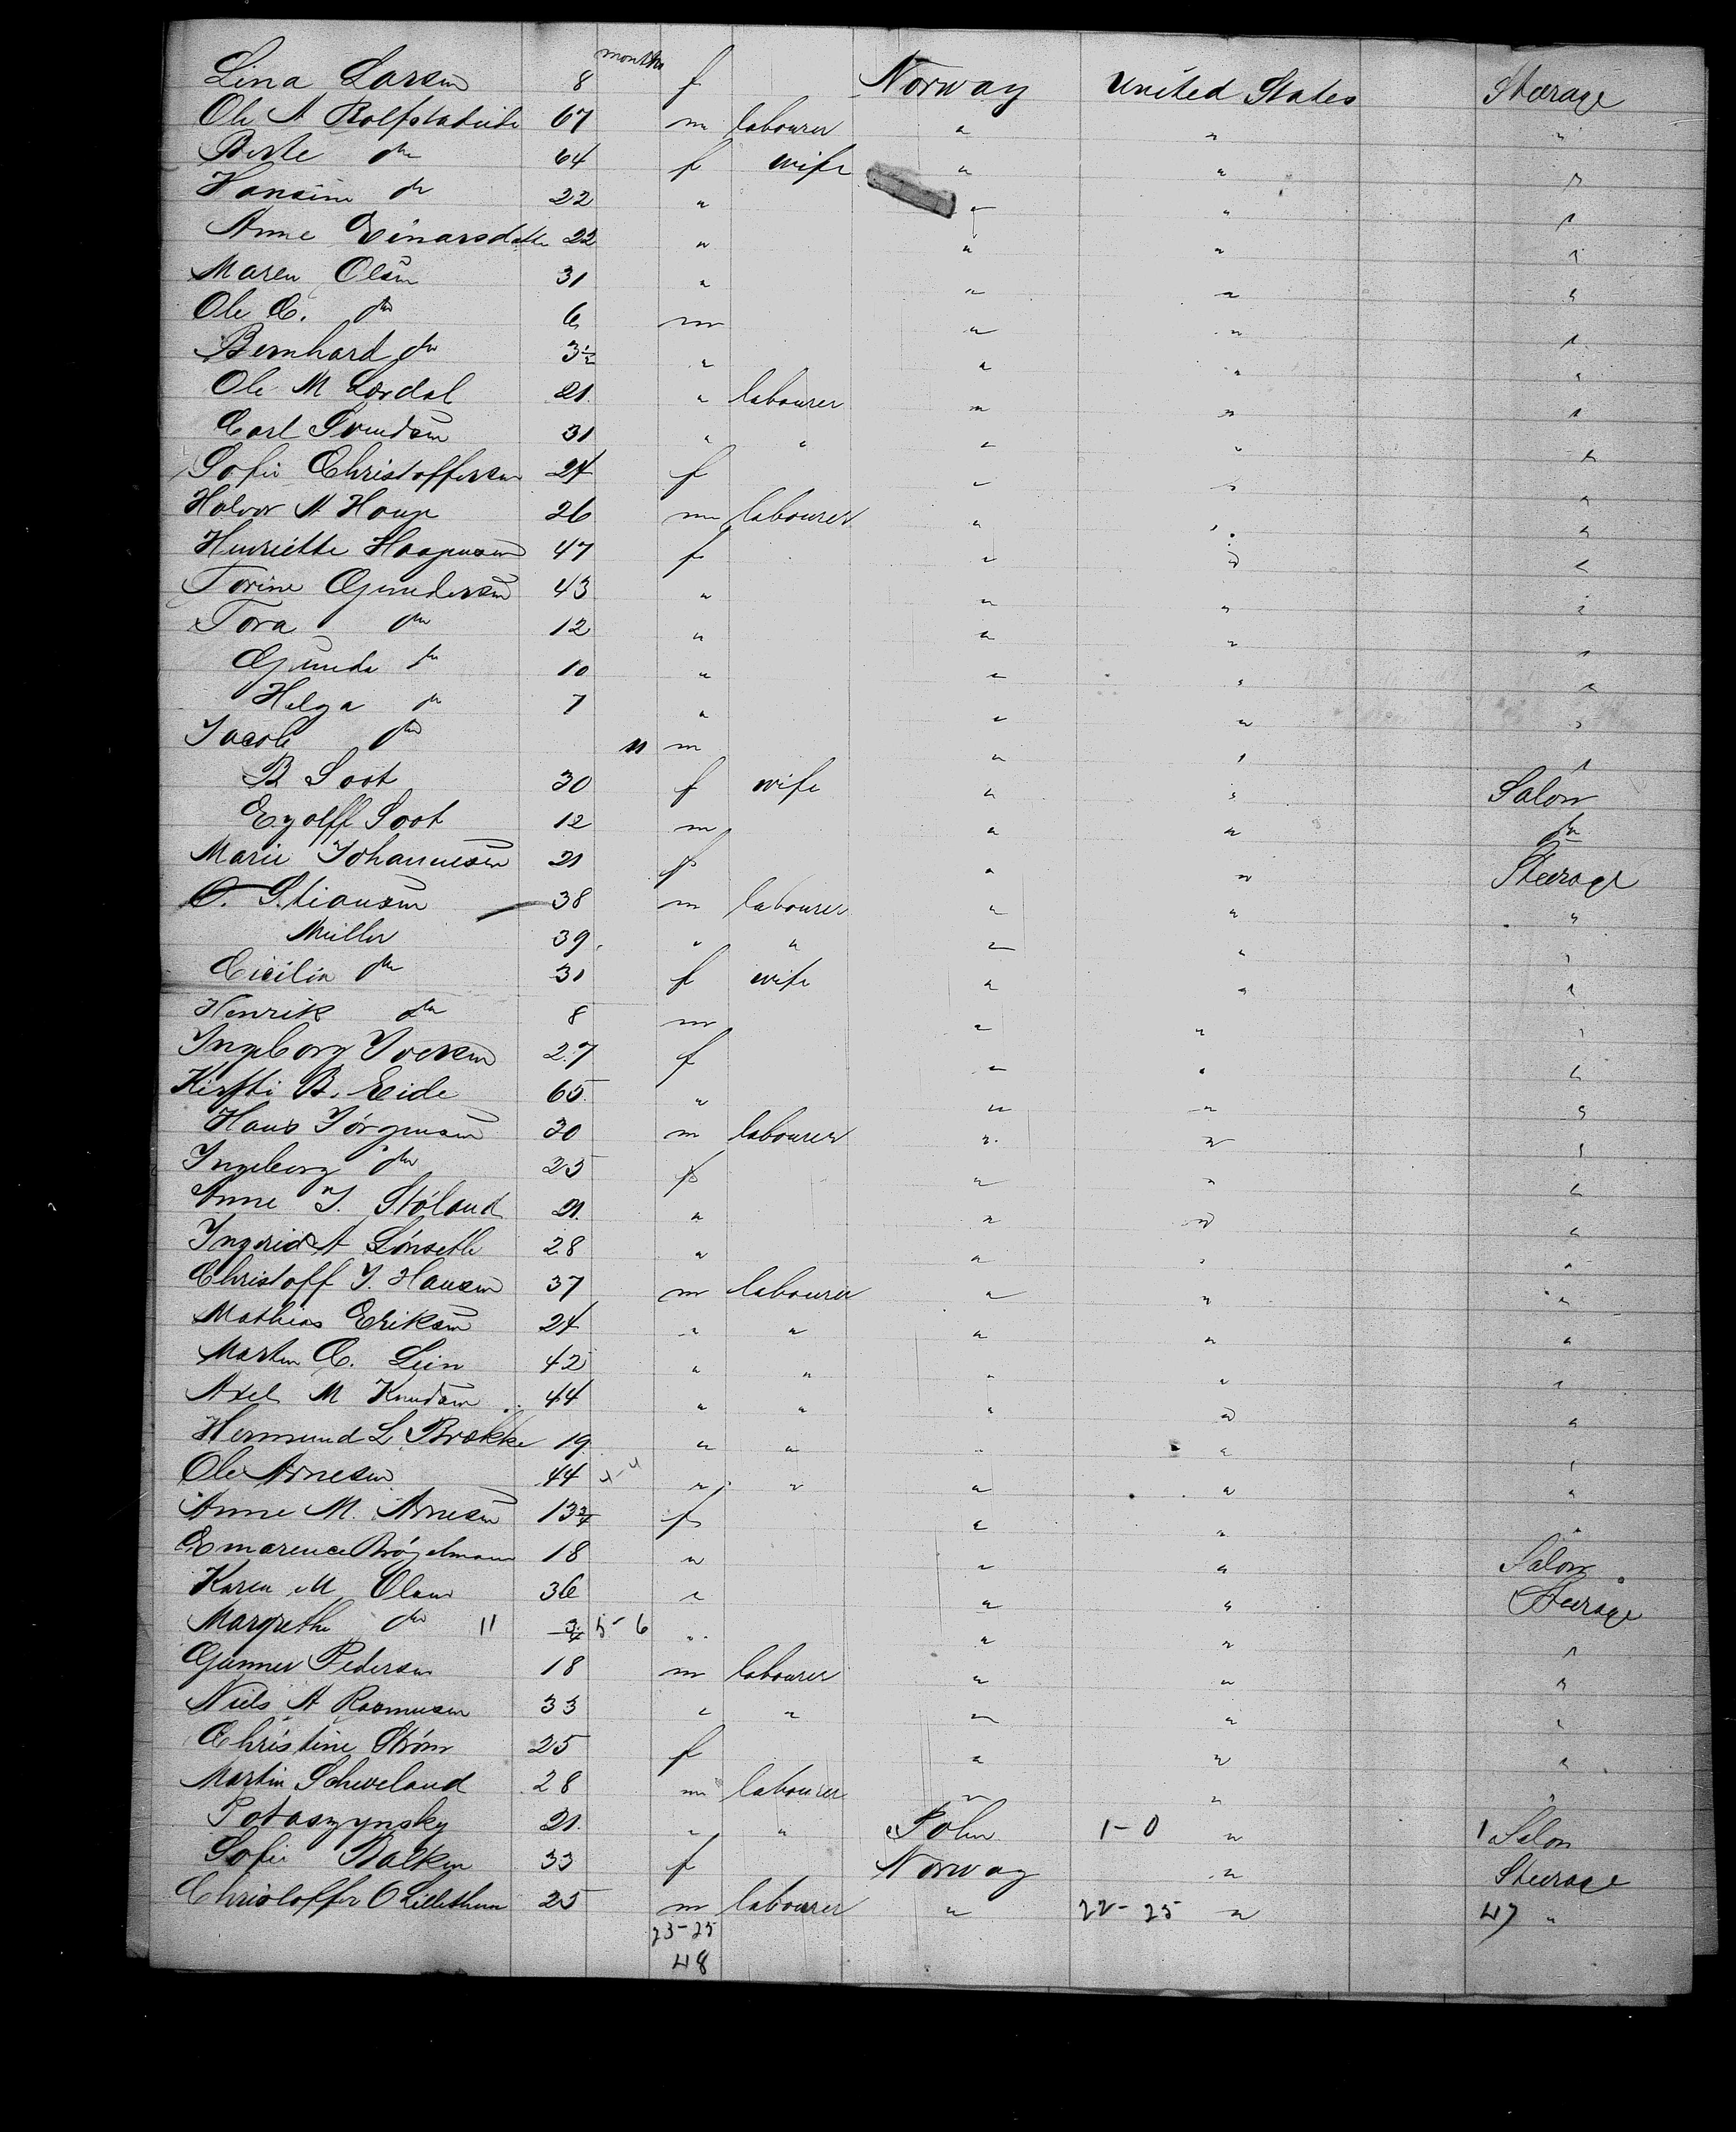 Lina Larsen 8 months f Norway United States Steerage
Ole A 67 m labourer " " "
Berte do 64 f wife " " "
Hansine do 22 " " " "
Anne Einarsdatter 22 " " " "
Maren Olsen 31 " " " "
Ole C. do 6 m " " "
Bernhard do 3½ " " " "
Ole M Lordal 21 " labourer " " "
Carl Svendsen 31 " " " " "
Sofie Christoffersen 24 f " " "
Halvor A Hauge 26 m labourer " " "
Henriette Haagensen 47 f " " "
Torine Gundersen 43 " " " "
Tora do 12 " " " "
Gunda do 10 " " " "
Helga do 7 " " " "
Jacob do 11 m " " "
B Soot 30 f wife " " Salon
Eyolff Soot 12 m " " do
Marie Johannesen 21 f " " Steerage
O. Stiansen 38 m labourer " " "
Müller 39. " " " " "
Cicilia do 31 f wife " " "
Henrik do 8 m " " "
Ingeborg Iversen 27 f " " "
Kirsti B. Eide 65 " " " "
Hans Jörgensen 30 m labourer " " "
Ingeborg do 25 f " " "
Anne J. Stöland 21. " " " "
Ingrid A Lönseth 28 " " " "
Christoff J. Hansen 37 m labourer " " "
Mathias Eriksen 24 " " " " "
Marten C. Lien 42 " " " " "
Axel M Knudsen 44 " " " " "
Hermund L Brække 19 " " " " "
Ole Arnesen 44 " " " " "
Anne M. Arnesen 13¾ f " " "
Emarence 18 " " " Salon
Karen M Olsen 36 " " " Steerage
Margrethe do 11 ¾ 5-6 " " " "
Gunner Pedersen 18 m labourer " " "
Niels A Rasmusen 33 " " " " "
Christine Ström 25 f " " "
Martin Scheveland 28 m labourer " " "
Potaszynsky 21. " " Polen 1-0 " 1 Salon
Sofie Balken 33 f Norway " Steerage
Christoffer O Lillethun 25 m labourer " 22-25 " 47 "
23-25
48